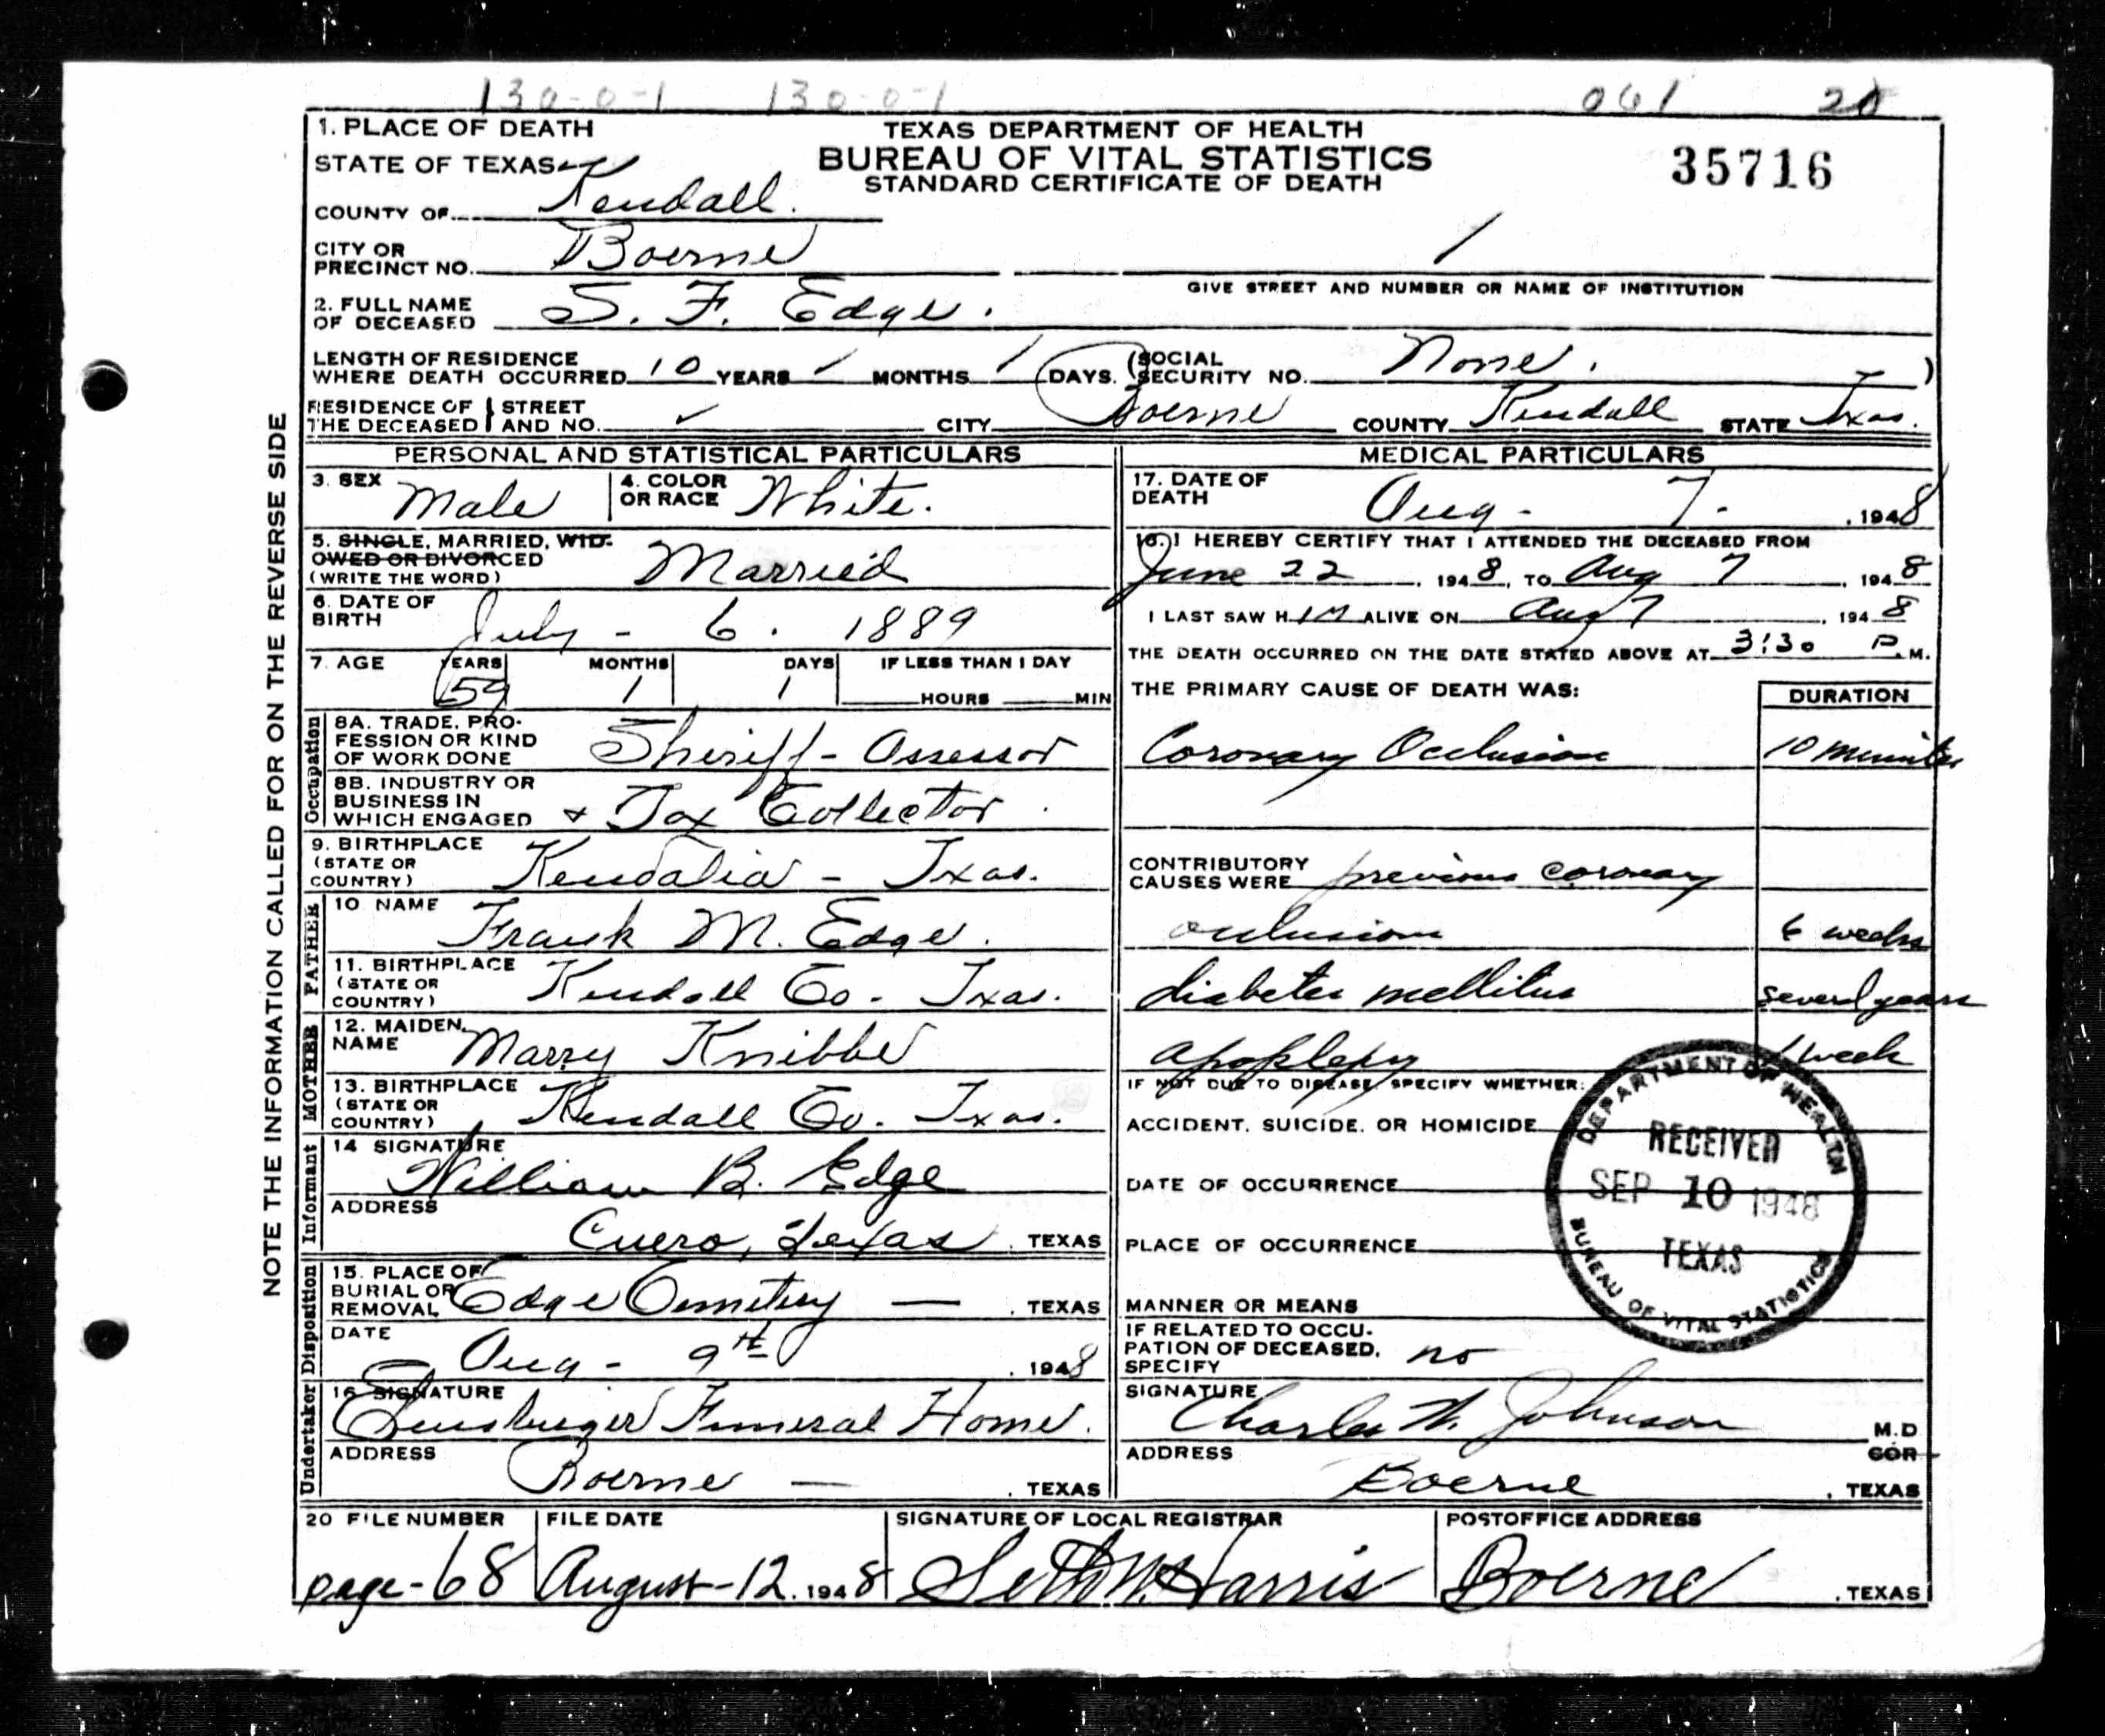 130-0-1 130-0-1 061 20
1. PLACE OF DEATH
STATE OF TEXAS
COUNTY OF Kendall.
TEXAS DEPARTMENT OF HEALTH
BUREAU OF VITAL STATISTICS
STANDARD CERTIFICATE OF DEATH
35716
CITY OR
PRECINCT NO. Boerne
GIVE STREET AND NUMBER OR NAME OF INSTITUTION
2. FULL NAME
OF DECEASED S. F. Edge.
LENGTH OF RESIDENCE
WHERE DEATH OCCURRED 10 YEARS / MONTHS / DAYS. (SOCIAL SECURITY NO. None. )
RESIDENCE OF THE DECEASED STREET AND NO. ✓ CITY Boerne COUNTY Kendall STATE Texas.
NOTE THE INFORMATION CALLED FOR ON THE REVERSE SIDE
PERSONAL AND STATISTICAL PARTICULARS
3. SEX Male 4. COLOR OR RACE White.
5. SINGLE, MARRIED, WID-
OWED OR DIVORCED
(WRITE THE WORD) Married
6. DATE OF
BIRTH July - 6. 1889
7. AGE YEARS 59 MONTHS 1 DAYS 1 IF LESS THAN 1 DAY
HOURS MIN
Occupation
8A. TRADE, PRO-
FESSION OR KIND
OF WORK DONE Sheriff - Assessor
8B. INDUSTRY OR
BUSINESS IN
WHICH ENGAGED + Tax Collector
9. BIRTHPLACE
(STATE OR
COUNTRY) Kendalia - Texas.
FATHER
10 NAME Frank M. Edge.
11. BIRTHPLACE
(STATE OR
COUNTRY) Kendall Co. Texas.
MOTHER
12. MAIDEN
NAME Marry Knibbe
13. BIRTHPLACE
(STATE OR
COUNTRY) Kendall Co. Texas.
Informant
14 SIGNATURE
William B. Edge
ADDRESS
Cuero, Texas . TEXAS
Disposition
15. PLACE OF
BURIAL OR
REMOVAL Edge Cemetery — . TEXAS
DATE
Aug - 9th . 1948
Undertaker
16 SIGNATURE
Funeral Home.
ADDRESS
Boerne — . TEXAS
MEDICAL PARTICULARS
17. DATE OF
DEATH Aug - 7 - . 1948
18. I HEREBY CERTIFY THAT I ATTENDED THE DECEASED FROM
June 22 . 1948, TO Aug 7 . 1948
I LAST SAW HIM ALIVE ON Aug 7 , 1948
THE DEATH OCCURRED ON THE DATE STATED ABOVE AT 3:30 P. M.
THE PRIMARY CAUSE OF DEATH WAS: DURATION
Coronary Occlusion 10 minutes
CONTRIBUTORY
CAUSES WERE previous coronary
occlusion 6 weeks
diabetes mellitus several years
apoplexy 1 week
IF NOT DUE TO DISEASE, SPECIFY WHETHER:
ACCIDENT, SUICIDE, OR HOMICIDE
DATE OF OCCURRENCE
PLACE OF OCCURRENCE
MANNER OR MEANS
DEPARTMENT OF HEALTH
RECEIVED
SEP 10 1948
TEXAS
BUREAU OF VITAL STATISTICS
IF RELATED TO OCCU-
PATION OF DECEASED,
SPECIFY no
SIGNATURE
Charles M. Johnson M.D
COR
ADDRESS
Boerne . TEXAS
20 FILE NUMBER FILE DATE SIGNATURE OF LOCAL REGISTRAR POSTOFFICE ADDRESS
page-68 August-12. 1948 Seth W. Harris Boerne . TEXAS